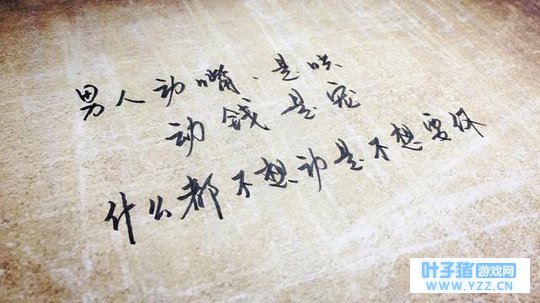 男人动嘴、是哄
动钱是宠
什么都不想动是不想要你
叶子猪游戏网
WWW.YZZ.CN